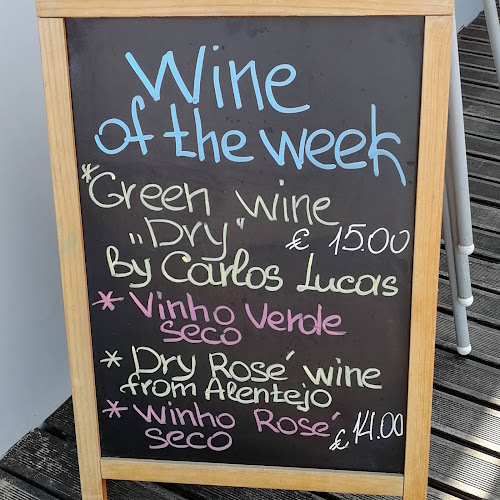 Wine
of the week
*Green wine
„Dry" € 15.00
By Carlos Lucas
* Vinho Verde
seco
* Dry Rosé wine
from Alentejo
* Winho Rosé
seco € 14.00